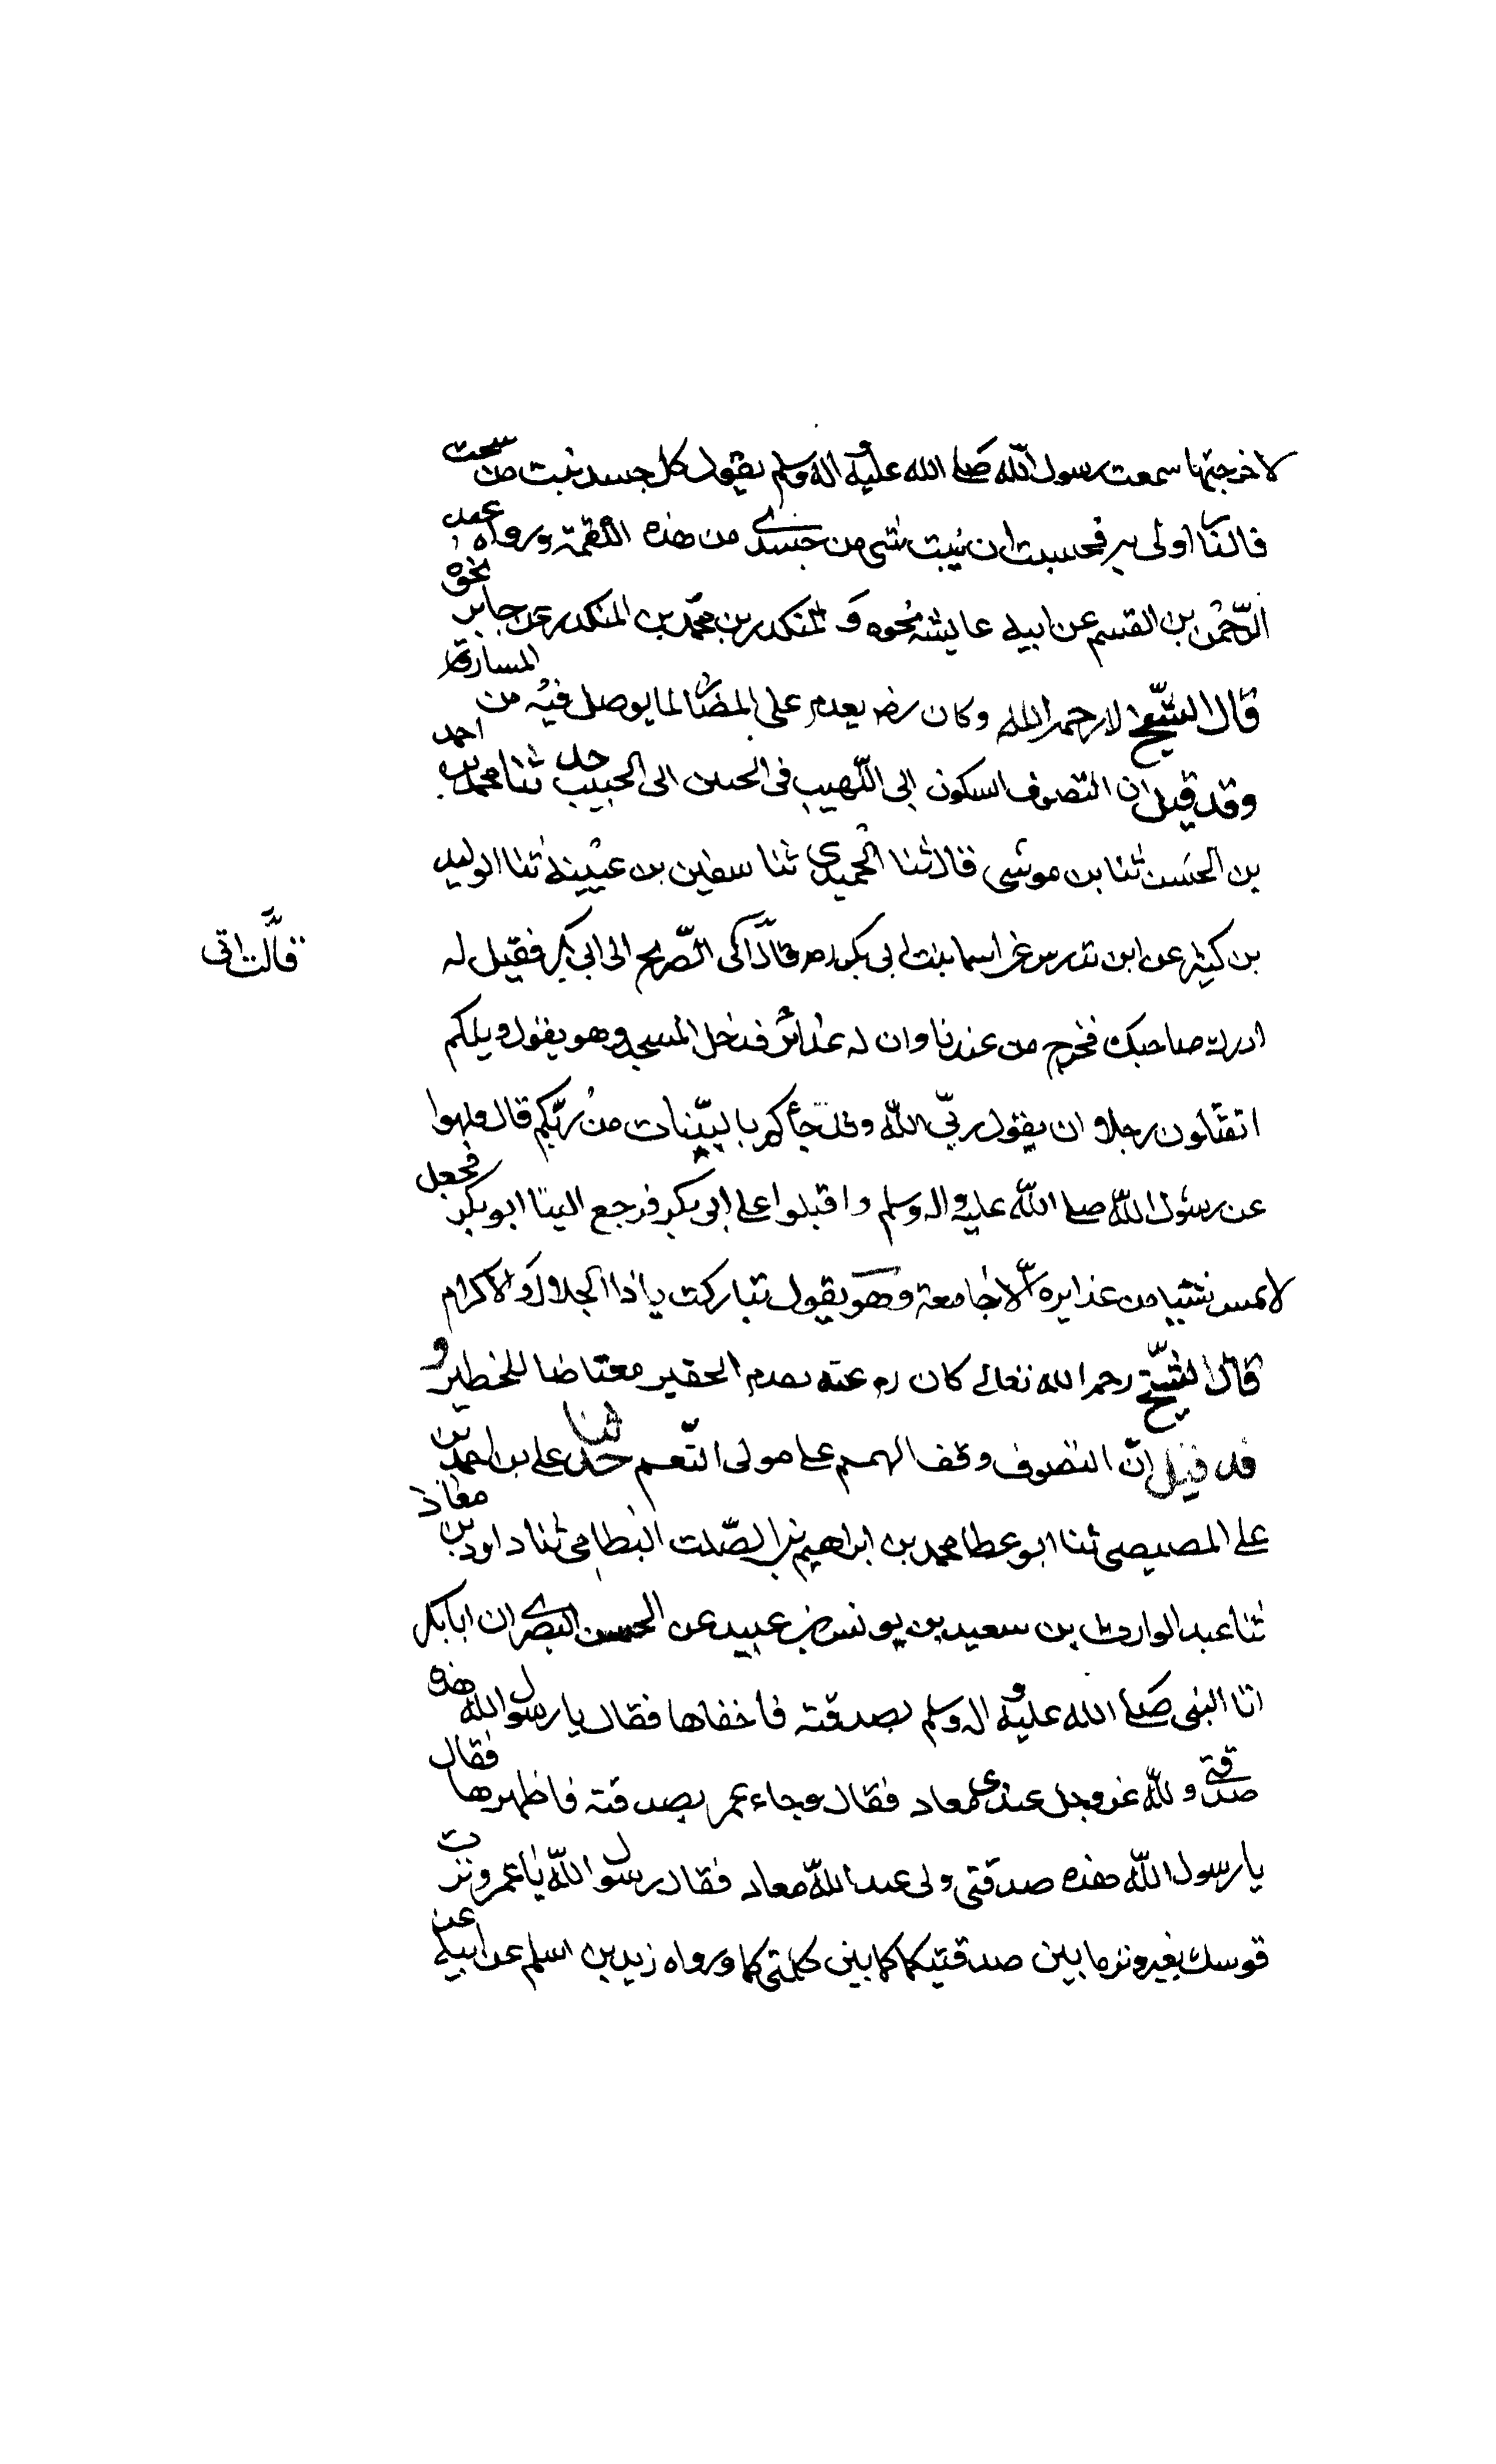 لاخرجتها سمعت رسول الله صلى الله عليه واله وسلم يقول كل جسد نبت من سحت
فالنار اولى به فحسبت ان ينبت شي من جسدى من هذه اللقمة ورواه عبد
الرحمن بن القسم عن ابيه عايشه نحوه و المنكدر بن محمد بن المنكدر عن جابر نحوه
قال الشيخ رحمه الله وكان رضه يعدم على المضار لما يوصل فيه من المسار
وقد قيل ان التصوف السكون الى اللهيب فى الحنين الى الحبيب حد ثنا محمد بن احمد
بن الحسن ثنا بن موسى قال ثنا الحميدى ثنا سفين بن عيينة ثنا الوليد
بن كثير عن ابن تدرس عن اسما بنت ابى بكر قالت اتى الصريح الى ابى بكر فقيل له
قالت اتى
ادرك صاحبك فخرج من عندنا وان له غدائر فدخل المسجد وهو يقول ويلكم
اتقتلون رجلا ان يقول ربي الله وقد جأكم بالبينات من ربكم قال فلهوا
عن رسول الله صلى الله عليه واله وسلم واقبلوا على ابى بكر فرجع الينا ابو بكر فجعل
لا يمس شيا من غدايره الا جا معه وهو يقول تباركت يا ذا الجلال والاكرام
قال الشيخ رحمه الله تعالى كان رم عنه يعدم الحقير معتاضا للخطير و
قد قيل ان التصوف وقف الهمم على مولى النعم حد ثنا على بن احمد بن
على المصيصى ثنا ابو عطا محمد بن ابراهيم بن الصلت البطامى ثنا داود بن معاذ
ثنا عبد الوارث بن سعيد بن يونس بن عبيد عن الحسن البصرى ان ابا بكر
اتا النبى صلى الله عليه واله وسلم بصدقته فاخفاها فقال يا رسول الله هذه
صدقتى ولله عز وجل عندى معاد فقال وجاء عمر بصدقته فاظهرها فقال
يا رسول الله هذه صدقتى ولى عند الله معاد فقال رسول الله يا عمر وترت
قوسك بغير وتر ما بين صدقتيكما كما بين كلمتيكما ورواه زيد بن اسلم عن ابيه عن